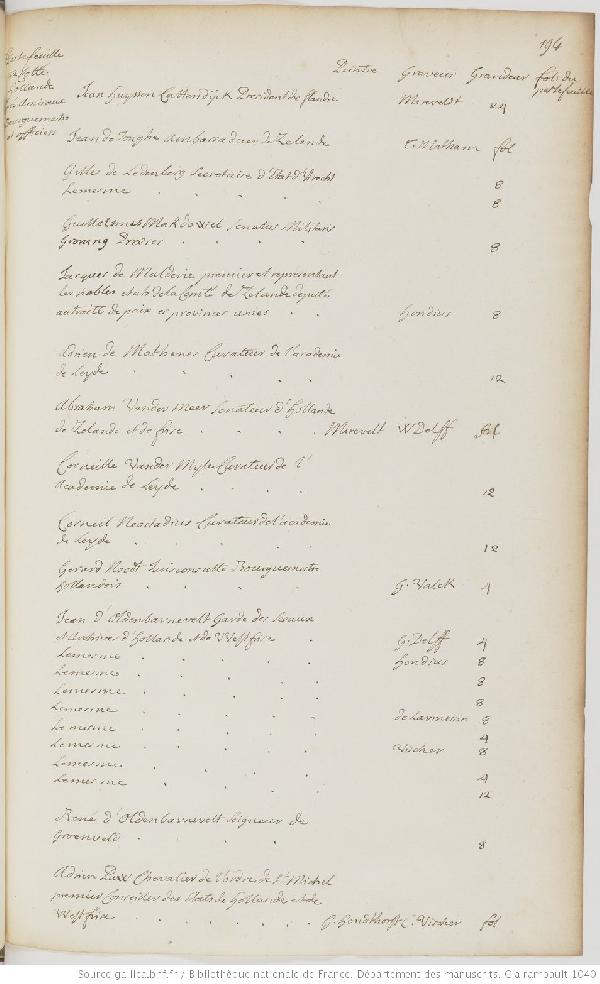 194
Portefeuille
Hollande
et officiers
Peintre Graveur Grandeur fol. du
portefeuille
Jean huyssen Cattendijck President de flandre Mireveldt 4
Jean de Jonghe Ambassadeur de Zelande T. Matham fol
Gilles de Ledenberg Secretaire d'Etat d'Utrecht 8
Lemesme 8
Guillelmus Makdowel Senatus Militaris
Groning Præses 8
Jacques de Malderée premier et representant
les nobles etats de la Comté de Zelande deputé
au traité de paix es provinces unies hondius 8
Adrien de Mathenes Curateur de l'academie
de Leyde 12
Abraham Vander Meer Senateur d'hollande
de Zelande et de frise Mirevelt W Delff fol
Corneille Vander Myle Curateur de l'
Academie de Leyde 12
Corneil Neostadius Curateur de l'academie
de Leyde 12
Gerard Noodt Jurisconsulte Bourguemestre
hollandois G. Valck 4
Jean d'Oldenbarnevelt Garde des Sceaux
et Archives d'hollande et de West frise G. Delff 4
Lemesme hondius 8
Lemesme 8
Lemesme 8
Lemesme de Larmessin 8
Lemesme 4
Lemesme Vischer 8
Lemesme 4
Lemesme 12
René d'Oldenbarnevelt Seigneur de
Groenveld 8
Adrien Pauw Chevalier de l'ordre de St Michel
premier Conseiller des Etats de hollande et de
West frise G. hondthorst C. Vischer fol.
Source gallica.bnf.fr / Bibliothèque nationale de France. Département des manuscrits. Clairambault 1040